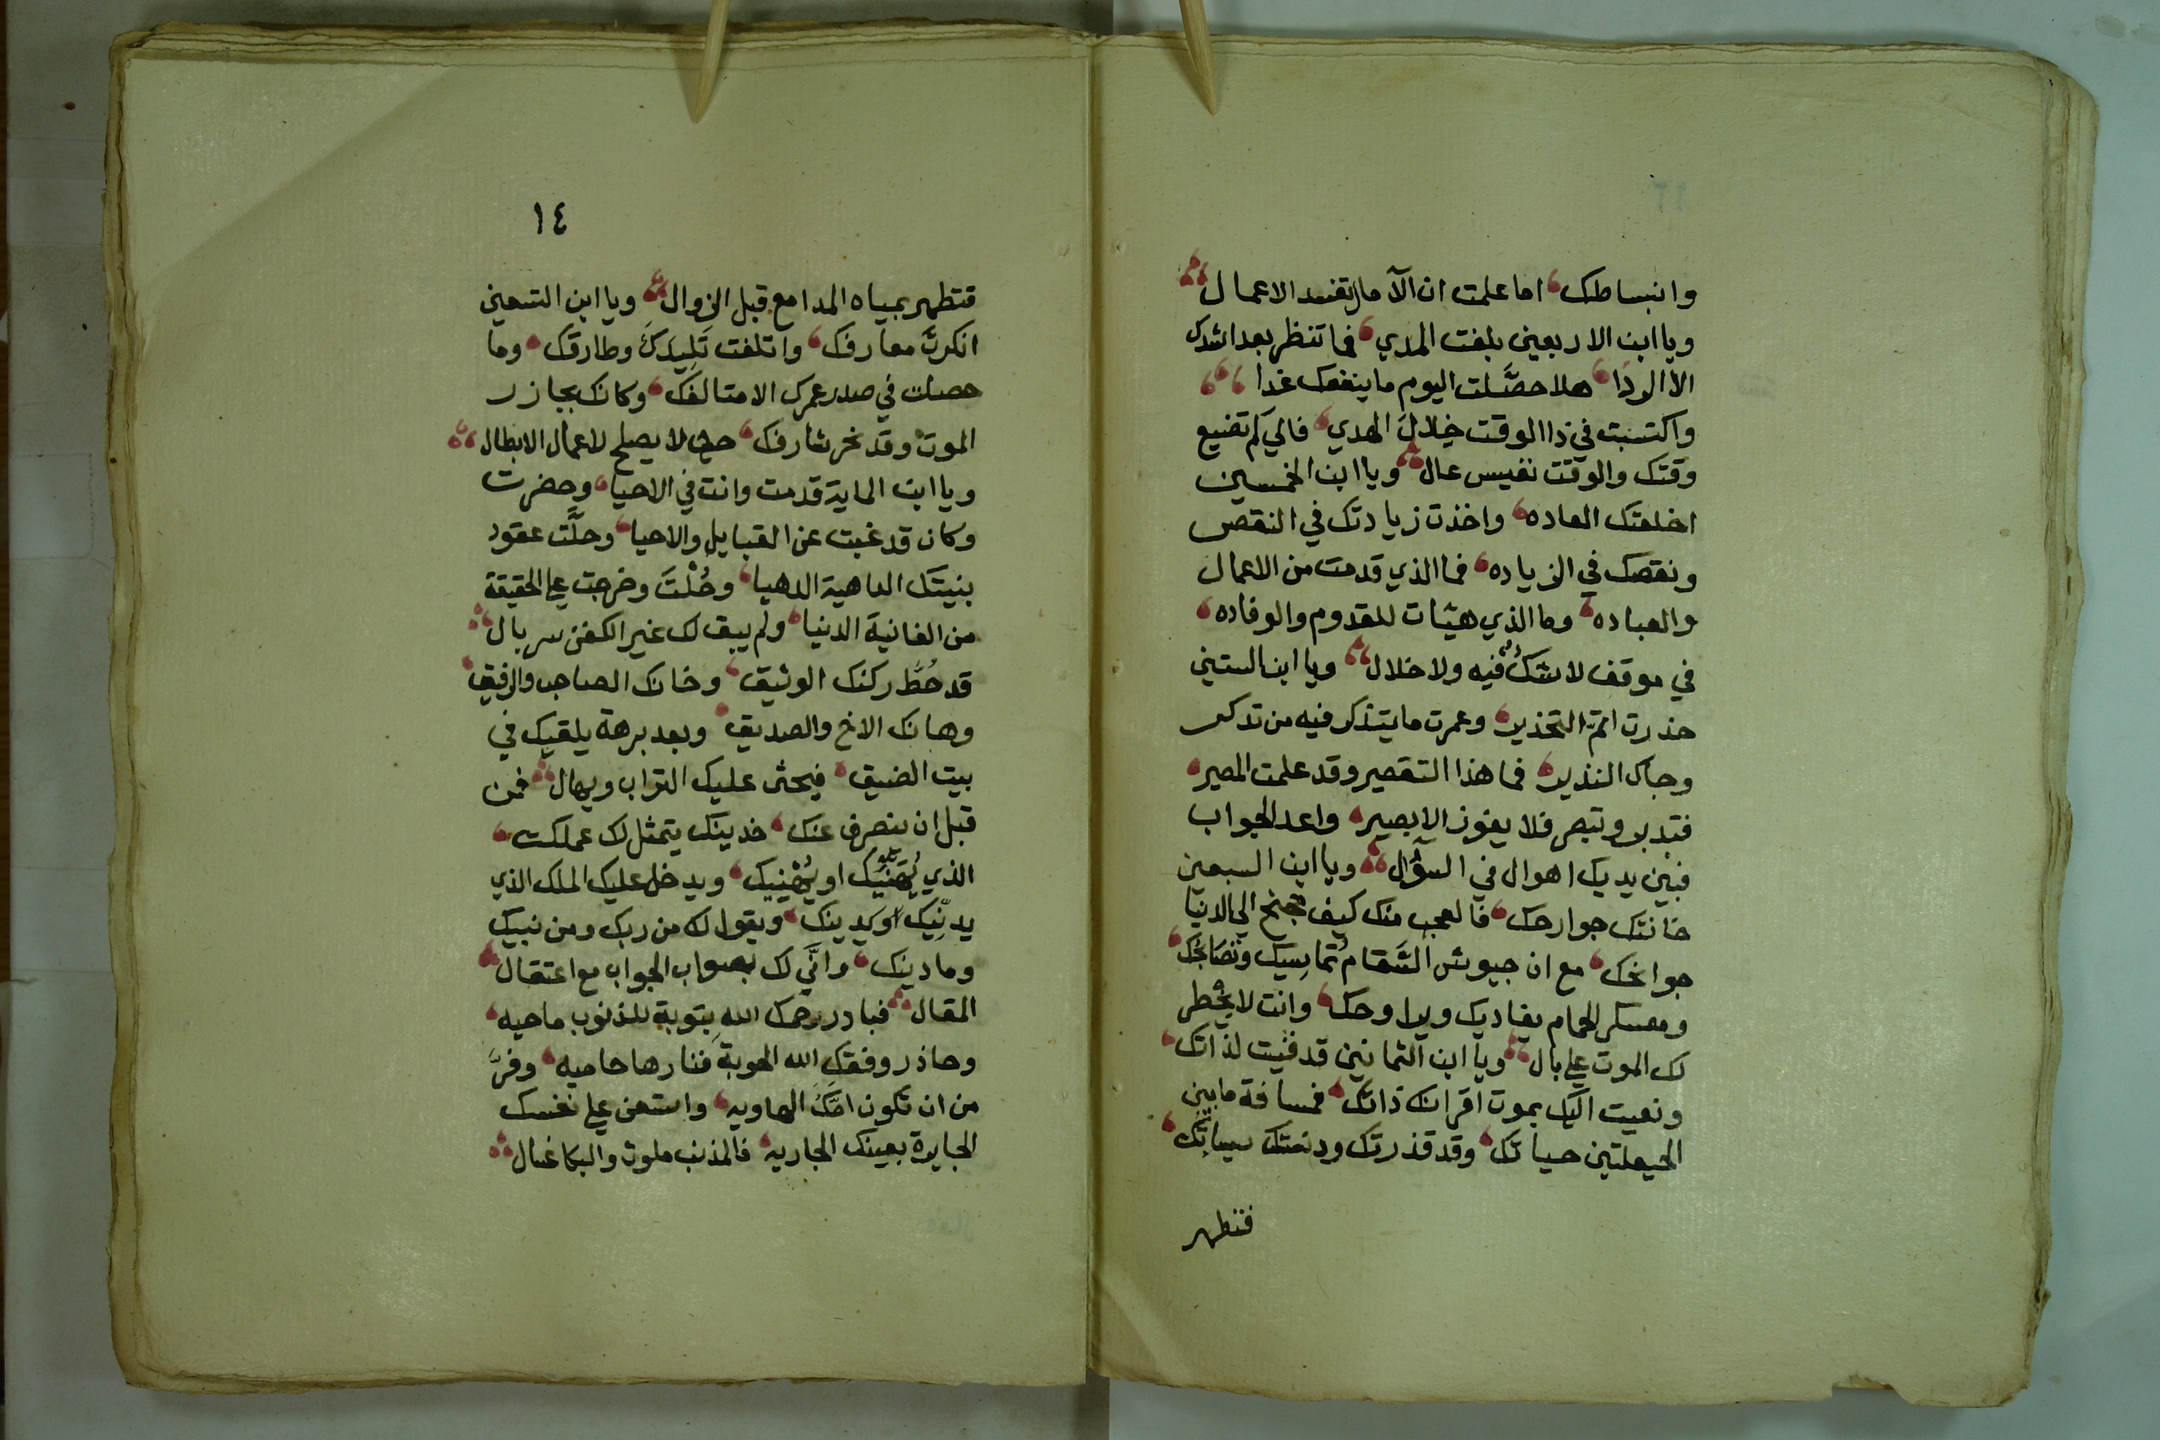 وانبساطك اما علمت ان الآمال تفسد الاعمال
ويا ابن الاربعين بلغت المدي فما تنظر بعد اشدك
الا الردا هلا حصَّلت اليوم ما ينفعك غدا
واكتسبت في ذا الوقت خِلالَ الهدي فالي كم تضيع
وقتك والوقت نفيس عال ويا ابن الخمسين
اخلعتك العاده واخذت زيادتك في النقص
ونقصك في الزياده فما الذي قدمت من الاعمال
والعباده وما الذي هيئات للقدوم والوفاده
في موقف لا شكُّ فيه ولا خلال ويا ابن الستين
حذرت اتمّ التحذير وعمرت ما يتذكر فيه من تدكر
وجاك النذير فما هذا التقصير وقد علمت المصير
فتدبر وتبصر فلا يفوز الا بصير واعد الجواب
فبين يديك اهوال في السؤال ويا ابن السبعين
خانتك جوارحك فالعجب منك كيف تجنح الي الدنيا
جوانحك مع ان جيوش السَّقام تُماسيك وتصابحك
ومعسكر الحمام يغاديك ويراوحك وانت لا يخطر
لك الموت علي بال ويا ابن الثمانين قد فنيت لذاتك
ونعيت اليك بموت اقرانك ذاتك فمسافة ما بين
الحيعلتين حياتك وقد قذرتك ودنستك سياتك
فتطهر
١٤
فتطهر بمياه المدامع قبل الزوال ويا ابن التسعين
انكرتَ معارفك واتلفت تَلِيدَكَ وطارقك وما
حصلت في صدر عمرك الا متالفك وكانك بجازر
الموت وقد نحر شارفك حين لا يصلح لاعمال الابطال
ويا ابن الماية قد مت وانت في الاحيا وحضرت
وكان قد غبت عن القبايل والاحيا وحلَّت عقود
بنيتك الداهية الدهيا وحُلْتَ وخرجت علي الحقيقة
من الفانية الدنيا ولم يبق لك غير الكفن سربال
قد حُطَّ ركنك الوثيق وخانك الصاحب والرفيق
وهانك الاخ والصديق وبعد برهة يلقيك في
بيت الضيق فيحثي عليك التراب ويهال فمن
قبل ان ينصرف عنك خدينك يتمثل لك عملك
الذي يُهَنِّيك او يُهْنِيك ويدخل عليك الملك الذي
يدنِيك او يدينك ويقول لك من ربك ومن نبيك
وما دينك وانَّي لك بصواب الجواب مع اعتقال
المقال فبادر رحمك الله بِتوبة للذنوب ماحيه
وحاذر وفقك الله الحوبة فنارها حاميه وفرَّ
من ان تكون امّك الهاويه واستعن علي نفسك
الجايرة بعينك الجاريه فالمذنب ملوث والبكا غسال